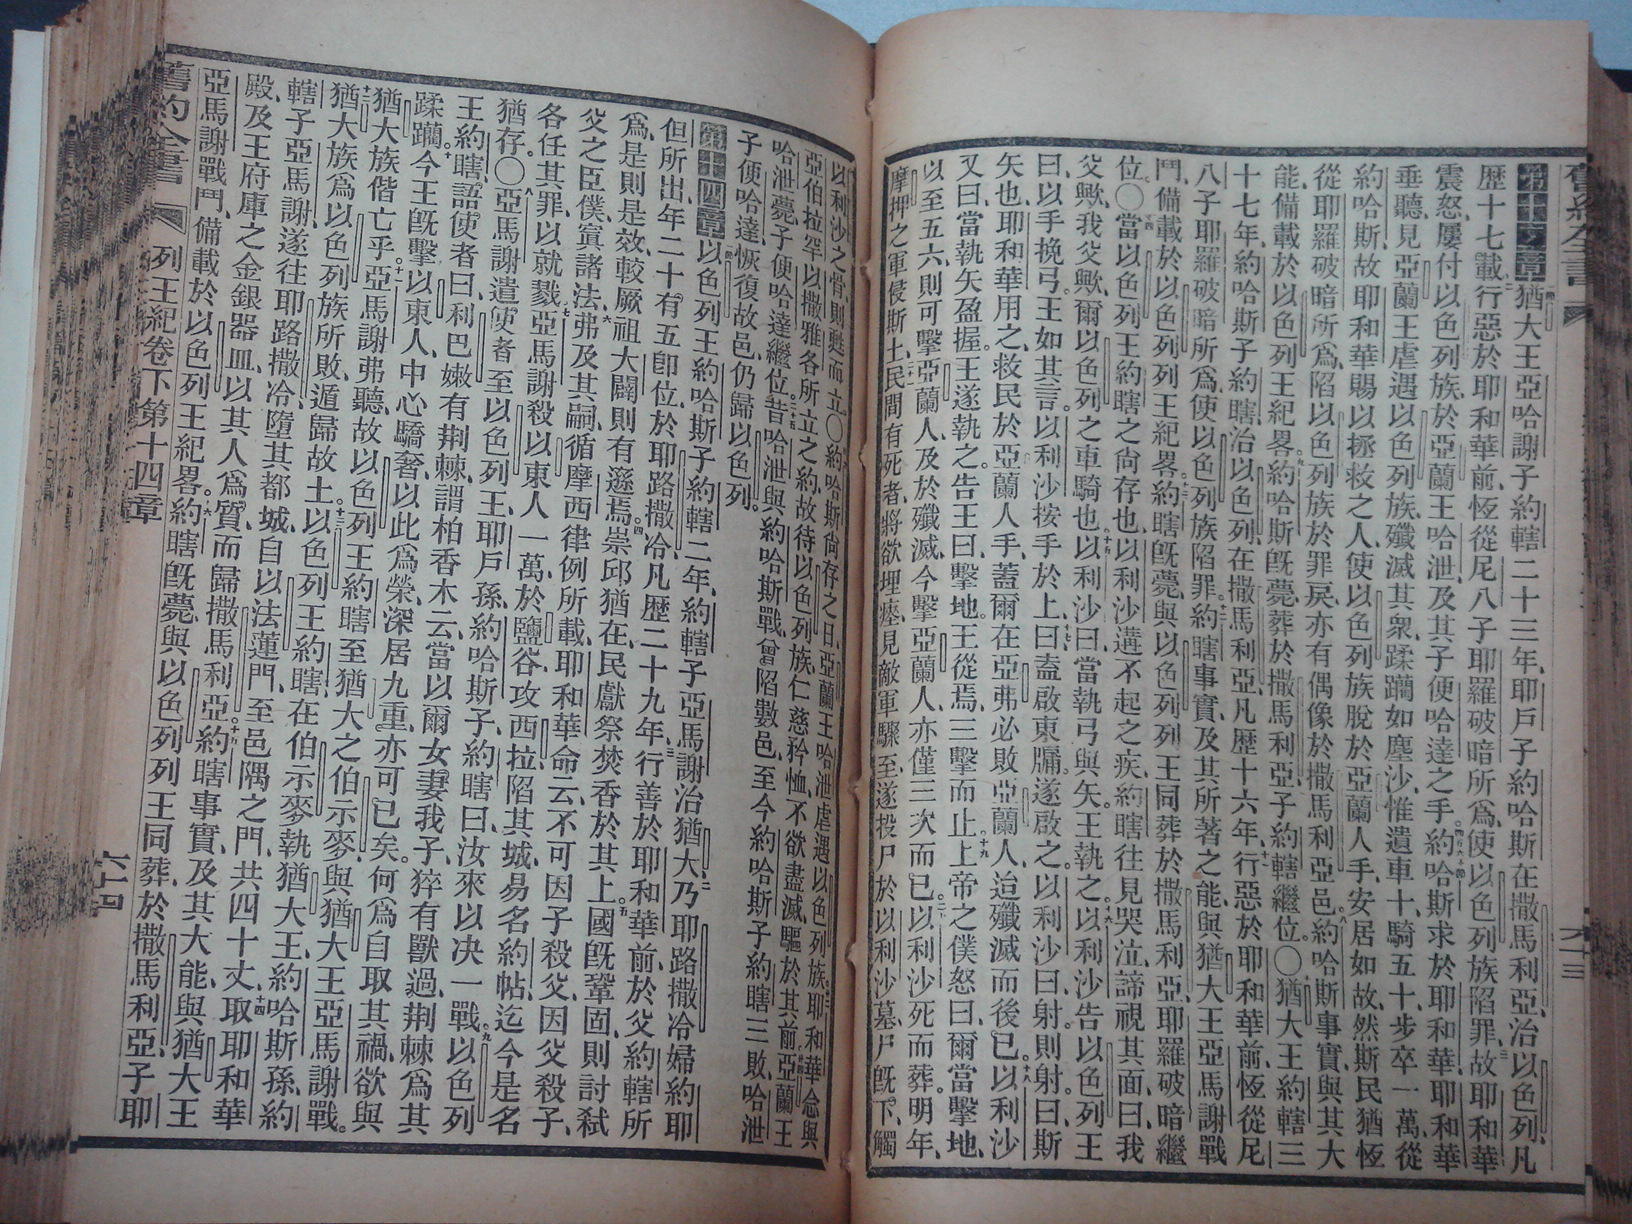 猶大王亞哈謝子約轄二十三年、耶戶子約哈斯在撒馬利亞、治以色列、凡
歷十七載、行惡於耶和華前、恆從尼八子耶羅破暗所爲、使以色列族陷罪、故耶和華
震怒、屢付以色列族、於亞蘭王哈泄、及其子便哈達之手。約哈斯求於耶和華、耶和華
垂聽、見亞蘭王虐遇以色列族、殲滅其衆、蹂躪如塵沙、惟遺車十、騎五十、步卒一萬、從
約哈斯、故耶和華賜以拯救之人、使以色列族脫於亞蘭人手、安居如故、然斯民猶恆
從耶羅破暗所爲、陷以色列族於罪戾、亦有偶像於撒馬利亞邑。約哈斯事實、與其大
能、備載於以色列王紀畧。約哈斯旣薨、葬於撒馬利亞、子約轄繼位。〇猶大王約轄三
十七年、約哈斯子約轄、治以色列、在撒馬利亞、凡歷十六年、行惡於耶和華前、恆從尼
八子耶羅破暗所爲、使以色列族陷罪。約轄事實、及其所著之能、與猶大王亞馬謝戰
鬥、備載於以色列列王紀畧。約轄旣薨、與以色列列王同葬於撒馬利亞、耶羅破暗繼
位。〇當以色列王約轄之尙存也、以利沙遘不起之疾、約轄往見、哭泣、諦視其面、曰、我
父歟、我父歟、爾以色列之車騎也。以利沙曰、當執弓與矢、王執之。以利沙告以色列王
曰、以手挽弓、王如其言、以利沙按手於上、曰、盍啟東牖、遂啟之、以利沙曰、射、則射。曰、斯
矢也、耶和華用之、救民於亞蘭人手、蓋爾在亞弗必敗亞蘭人、迨殲滅而後已。以利沙
又曰、當執矢盈握、王遂執之、告王曰、擊地。王從焉、三擊而止。上帝之僕怒曰、爾當擊地、
以至五六、則可擊亞蘭人、及於殲滅、今擊亞蘭人、亦僅三次而已。以利沙死而葬。明年、
摩押之軍侵斯土、民間有死者、將欲埋瘞、見敵軍驟至、遂投尸於以利沙墓、尸旣下、觸
以利沙之骨、則甦而立。〇約哈斯尙存之日、亞蘭王哈泄虐遇以色列族。耶和華念與
亞伯拉罕、以撒、雅各、所立之約、故待以色列族、仁慈矜恤、不欲盡滅、驅於其前、亞蘭王
哈泄薨、子便哈達繼位。昔哈泄與約哈斯戰、曾陷數邑、至今約哈斯子約轄三敗哈泄
子便哈達、恢復故邑、仍歸以色列。
第十四章 以色列王約哈斯子約轄二年、約轄子亞馬謝治猶大、乃耶路撒冷婦約耶
但所出、年二十有五卽位、於耶路撒冷、凡歷二十九年、行善於耶和華前、於父約轄所
爲、是則是效、較厥祖大闢、則有遜焉。崇邱猶在、民獻祭焚香於其上。國旣鞏固、則討弒
父之臣僕、寘諸法、弗及其嗣、循摩西律例所載、耶和華命云、不可因子殺父、因父殺子、
各任其罪、以就戮。亞馬謝殺以東人一萬、於鹽谷、攻西拉、陷其城、易名約帖、迄今是名
猶存。〇亞馬謝遣使者至以色列王、耶戶孫、約哈斯子、約轄曰、汝來以決一戰。以色列
王約轄、語使者曰、利巴嫩有荆棘、謂柏香木云、當以爾女妻我子、猝有獸過、荆棘爲其
蹂躪。今王旣擊以東人、中心驕奢、以此爲榮、深居九重、亦可已矣。何爲自取其禍、欲與
猶大族偕亡乎。亞馬謝弗聽、故以色列王約轄至猶大之伯示麥、與猶大王亞馬謝戰。
猶大族爲以色列族所敗、遁歸故土。以色列王約轄在伯示麥、執猶大王、約哈斯孫、約
轄子亞馬謝、遂往耶路撒冷、墮其都城、自以法蓮門、至邑隅之門、共四十丈、取耶和華
殿、及王府庫之金銀器皿、以其人爲質、而歸撒馬利亞。約轄事實、及其大能、與猶大王
亞馬謝戰鬥、備載於以色列王紀畧。約轄旣薨、與以色列列王同葬於撒馬利亞、子耶
舊約全書 列王紀卷下 第十四章 六十四